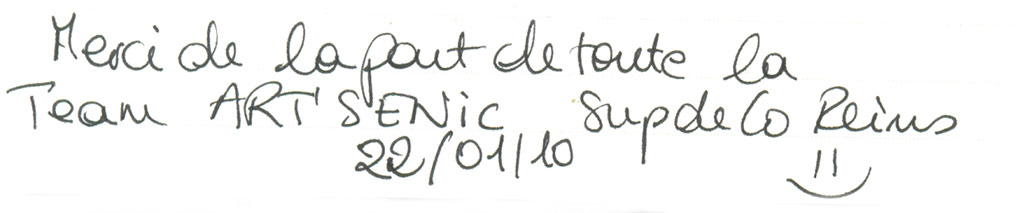 Merci de la part de toute la
Team ART'SENiC Sup de Co Reims
22/01/10